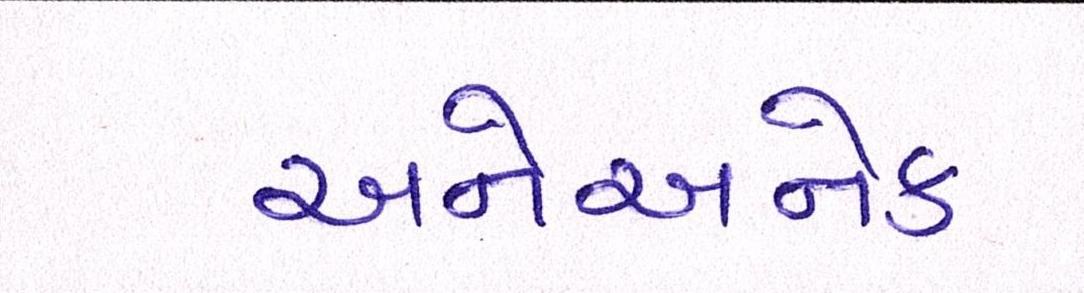 અનેઅનેક